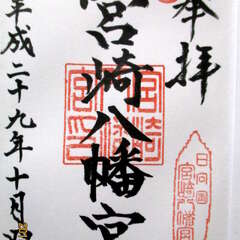 奉拝
宮崎八幡宮
平成二十九年十月
日向国
宮崎八幡宮